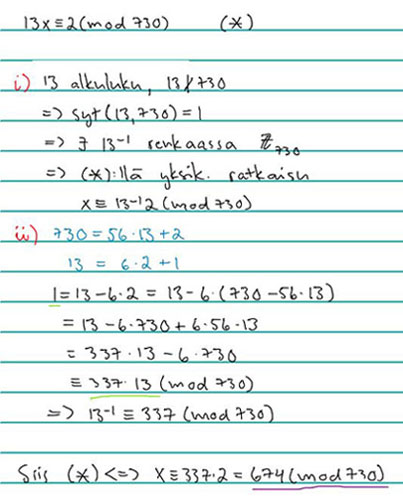 13x ≡ 2 (mod 730) (*)
i) 13 alkuluku, 13 ∤ 730
=> syt(13,730) = 1
=> ∃ 13⁻¹ renkaassa ℤ₇₃₀
=> (*):llä yksik. ratkaisu
x ≡ 13⁻¹2 (mod 730)
ii) 730 = 56·13+2
13 = 6·2+1
1 = 13-6·2 = 13-6·(730-56·13)
= 13-6·730+6·56·13
= 337·13-6·730
≡ 337·13 (mod 730)
=> 13⁻¹ ≡ 337 (mod 730)
Siis (*) <=> x ≡ 337·2 = 674 (mod 730)